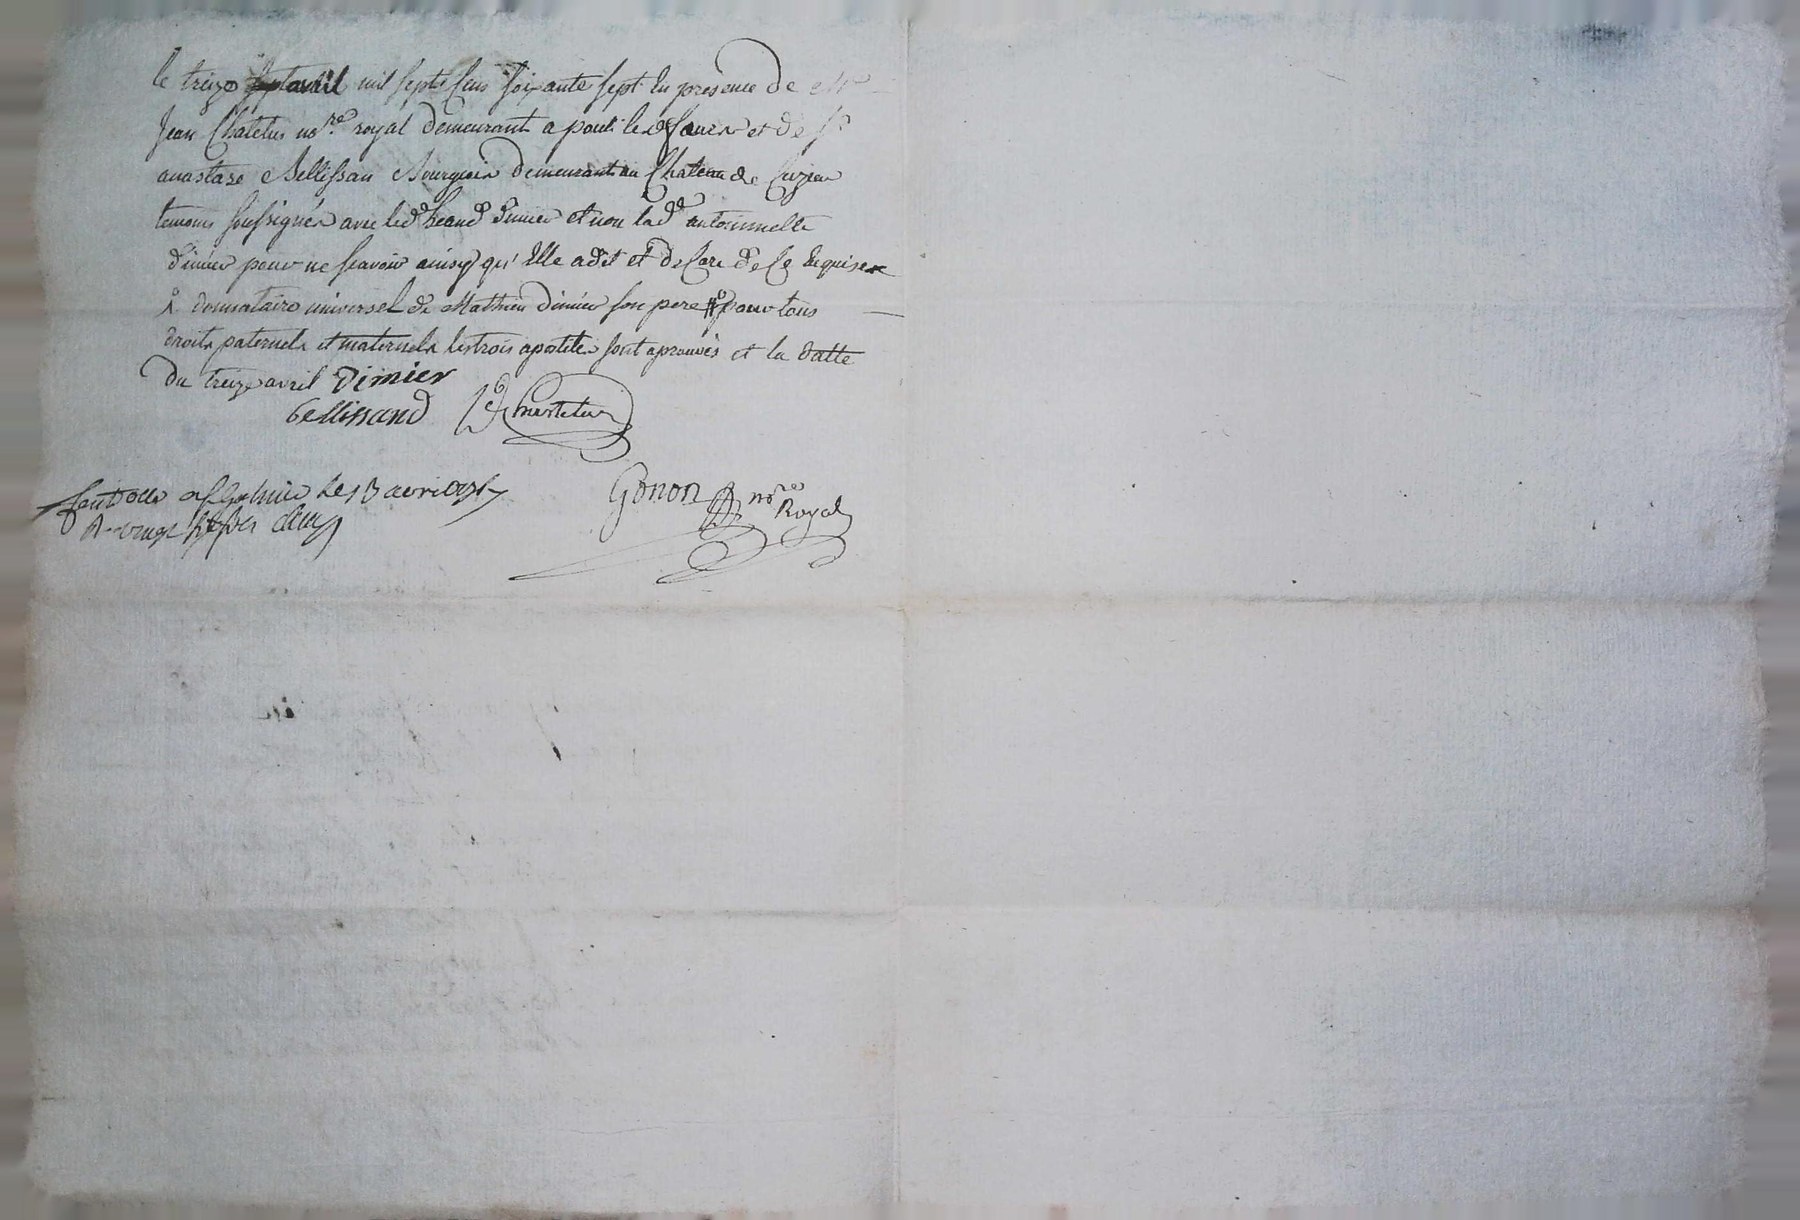 le treize avril mil sept Cens soixante sept En presence de Mre
Jean Chatelus nore. royal demeurant a pouli les feurs et de Sr
anastaze Bellissan Bourgeois demeurant au Chateau de Cuzieu
temoins soussignés avec led. Dimier et non lad.e antoinnette
Dimier pour ne scavoir ainsy qu'Elle a dit et declare de ce Enquise
donnataire universel de Mathieu dimier son pere pour tous
droits paternels et maternels les trois apostiles sont aprouvés et la datte
du treize avril Dimier
bellissand Chastelus
Gonon nore Royal
Controllé a St Galmier le 13 avril 1767
R. vingt six sols